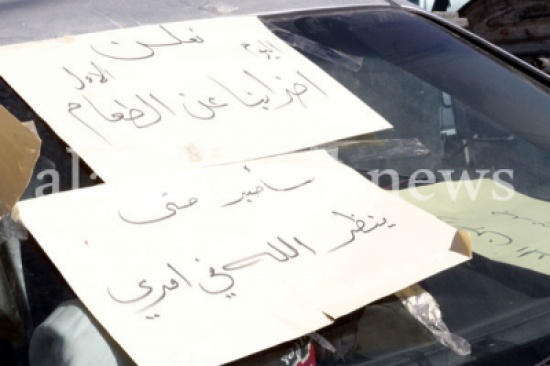 نعلن
اليوم
الاول
اضرابنا عن الطعام
سأصبر حتى
ينظر الله في امري
news